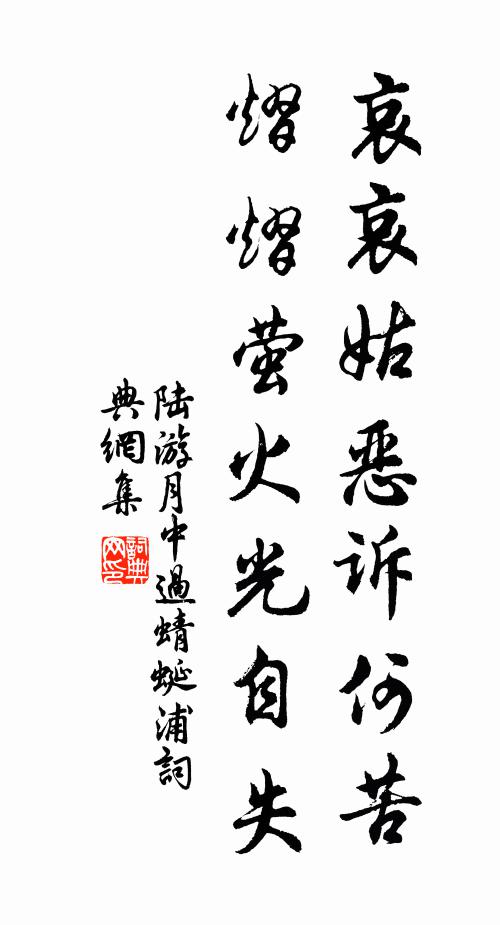 哀哀姑恶诉何苦
熠熠萤火光自失
陆游月中過蜻蜓浦詞
典網集
詞典
网印